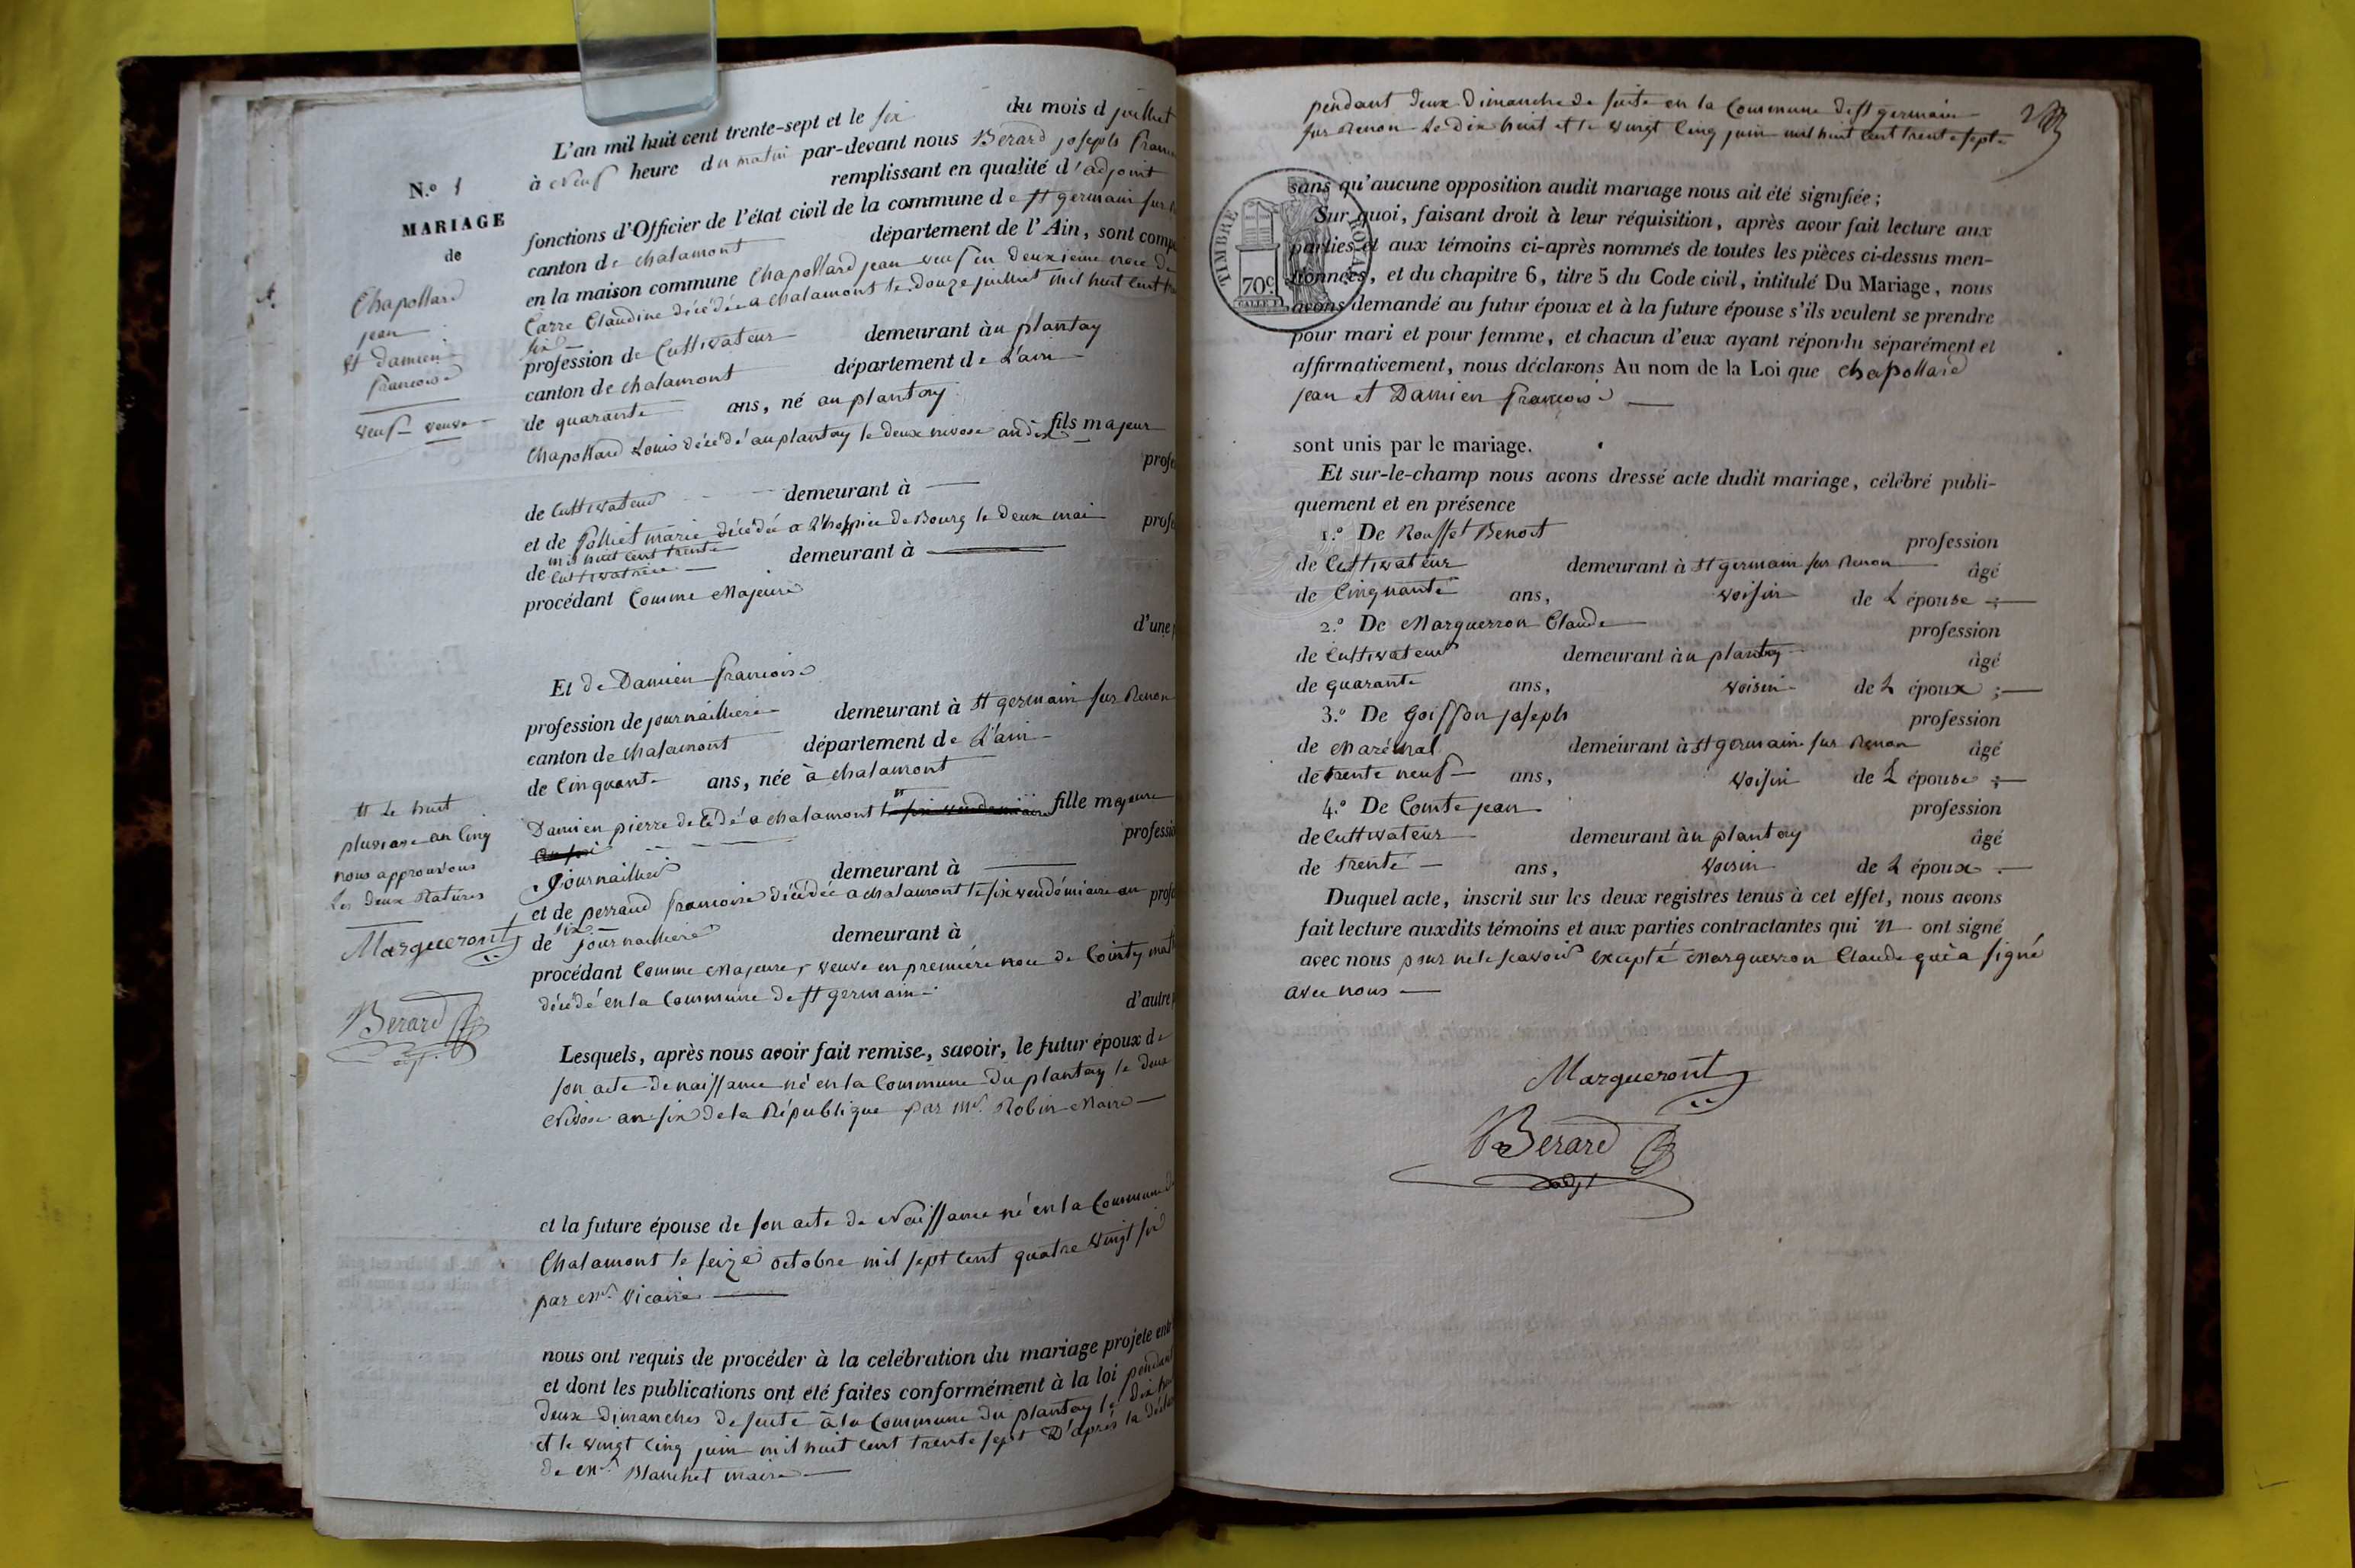 N.o 1
MARIAGE
de
Chapollard
jean
et damien
francoise
veuf veuve
L'an mil huit cent trente-sept et le six du mois d juillet
à neuf heure du matin par-devant nous Berard joseph
remplissant en qualité d'adjoint
fonctions d'Officier de l'état civil de la commune de st germain sur
canton de chalamont département de l'Ain, sont
en la maison commune Chapollard jean veuf en deuxieme noce de
Carre Claudine décédée a chalamont le douze juillet mil huit cent
six
profession de Cultivateur demeurant àu plantay
canton de chalamont département de L'ain
de quarante ans, né au plantay
fils majeur
Chapollard Louis décédé au plantay le deux nivose an dix
de Cultivateur demeurant à
et de Polliet marie décédée a L'hospice de Bourg le deux mai
mil huit cent trente
de Cultivatrice demeurant à
procédant Comme Majeure
d'une
Et de Damien francoise
profession de journailliere demeurant à st germain sur Renon
canton de chalamont département de L'ain
de Cinquante ans, née à chalamont
fille majeure
Damien pierre décédé a chalamont
journaillier demeurant à
et de perraud francoise décédée a chalamont le six vendémiaire an
six
de journailliere demeurant à
procédant Comme Majeure, veuve en premiére noce de Cointy
décédé en la Commune de st germain
d'autre
tt Le huit
pluviose an Cinq
nous approuvons
Les deux Ratures
Margueront
Berard
adjt
Lesquels, après nous avoir fait remise, savoir, le futur époux de
son acte de naissance né en la Commune du plantay le deux
Nivose an six de la République par mr. Robin Maire
et la future épouse de son acte de Naissance né en la Commune
Chalamont le seize octobre mil sept cent quatre vingt six
par mr. Vicaire
nous ont requis de procéder à la celébration du mariage projeté
et dont les publications ont été faites conformément à la loi pendant
deux dimanches de suite à la Commune du plantay le dix
et le vingt cinq juin mil huit cent trente sept D'aprés la
de mr. Blanchet maire
pendant deux Dimanche de suite en la Commune de st germain
sur Renon Le Dix huit et le vingt Cinq juin mil huit cent trente sept
TIMBRE ROYAL
70c
sans qu'aucune opposition audit mariage nous ait été signifiée ;
Sur quoi, faisant droit à leur réquisition, après avoir fait lecture aux
parties et aux témoins ci-après nommés de toutes les pièces ci-dessus men-
tionnées, et du chapitre 6, titre 5 du Code civil, intitulé Du Mariage, nous
avons demandé au futur époux et à la future épouse s'ils veulent se prendre
pour mari et pour femme, et chacun d'eux ayant répondu séparément et
affirmativement, nous déclarons Au nom de la Loi que chapollard
jean et Damien francoise
sont unis par le mariage.
Et sur-le-champ nous avons dressé acte dudit mariage, célébré publi-
quement et en présence
1.o De Rousset Benoit
profession
de Cultivateur demeurant à st germain sur Renon âgé
de Cinquante ans, voisin de L épouse ;
2.o De Marguerron Claude
profession
de Cultivateur demeurant àu plantay âgé
de quarante ans, voisin de L époux ;
3.o De Goiffon joseph
profession
de Maréchal demeurant à st germain sur Renon âgé
de trente neuf ans, voisin de L épouse ;
4.o De Comte jean
profession
de Cultivateur demeurant àu plantay âgé
de trente ans, voisin de L époux .
Duquel acte, inscrit sur les deux registres tenus à cet effet, nous avons
fait lecture auxdits témoins et aux parties contractantes qui n ont signé
avec nous pour ne le scavoir excepté Marguerron Claude qui a signé
avec nous
Margueront
Berard
adjt